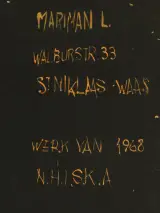 MARIMAN L.
WALBURSTR 33
ST NIKLAAS-WAAS
WERK VAN 1968
N.H.I.S.K.A